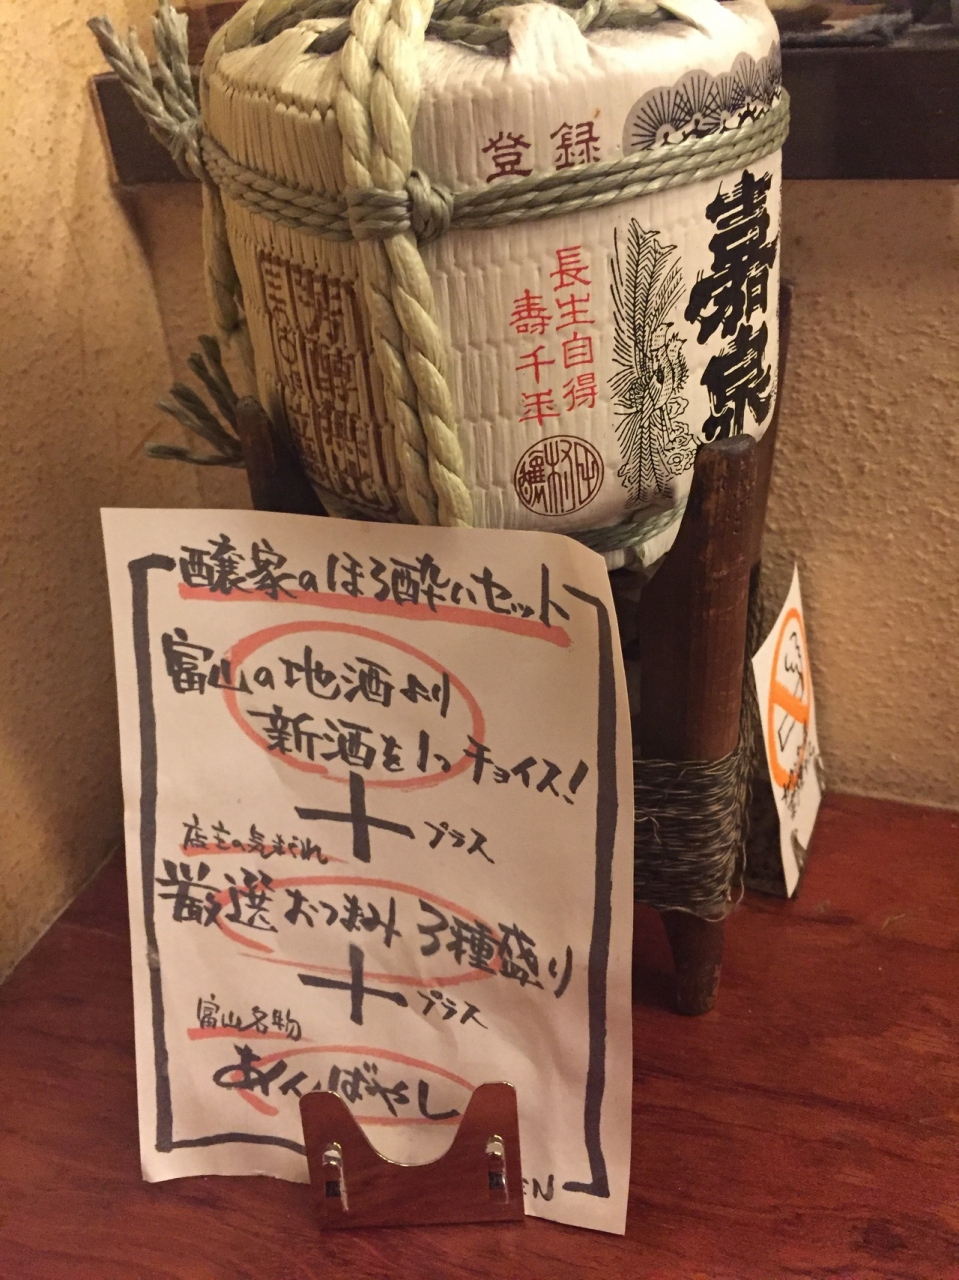 登録
嘉泉
長生自得
壽千年
醸家のほろ酔いセット
富山の地酒より
新酒を1つチョイス!
プラス
店主の気まぐれ
厳選おつまみ3種盛り
プラス
富山名物
あんばやし
EN